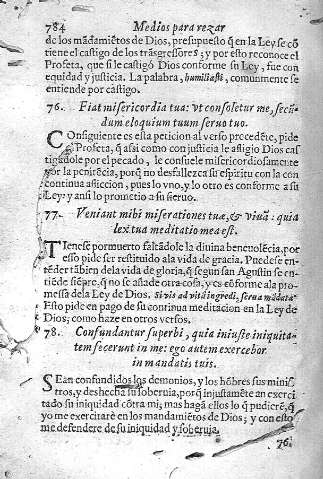 784 Medios para rezar
de los mãdamiẽtos de Dios, presupuesto q̃ en la Ley se cõ
tiene el castigo de los trãsgressores; y por esto reconoce el
Profeta, que si le castigó Dios conforme su Ley, fue con
equidad y justicia. La palabra, humiliasti, comunmente se
entiende por castigo.
76. Fiat misericordia tua: vt consoletur me, secũ-
dum eloquium tuum seruo tuo.
COnsiguiente es esta peticion al verso precedẽte, pide
el Profeta, q̃ assi como con justicia le afligio Dios cas
tigãdole por el pecado, le consuele misericordiosamente
por la penitẽcia, porq̃ no desfallezca su espiritu con la con
continua afliccion, pues lo vno, y lo otro es conforme a su
Ley y ansi lo prometio a su sieruo.
77. Veniant mihi miserationes tuæ, & viuã: quia
lex tua meditatio mea est.
TIenese por muerto faltãdole la diuina beneuolẽcia, por
esso pide ser restituido ala vida de gracia. Puedese en-
tẽder tãbien dela vida de gloria, q̃ segun san Agustin se en-
tiẽde siẽpre, q̃ no se añade otra cosa, y es cõforme ala pro-
messa dela Ley de Dios. Si vis ad vitã ingredi, serua mãdata.
Esto pide en pago de su continua meditacion en la Ley de
Dios; como haze en otros versos.
78. Confundantur superbi, quia iniuste iniquita-
tem fecerunt in me: ego autem exercebor
in mandatis tuis.
SEan confundidos los demonios, y los hõbres sus minis
tros, y deshecha su soberuia, porq̃ injustamẽte an exerci
tado su iniquidad cõtra mi; mas hagã ellos lo q̃ pudierẽ, q̃
yo me exercitaré en los mandamiẽtos de Dios; y con esto
me defendere de su iniquidad y soberuia.
76.